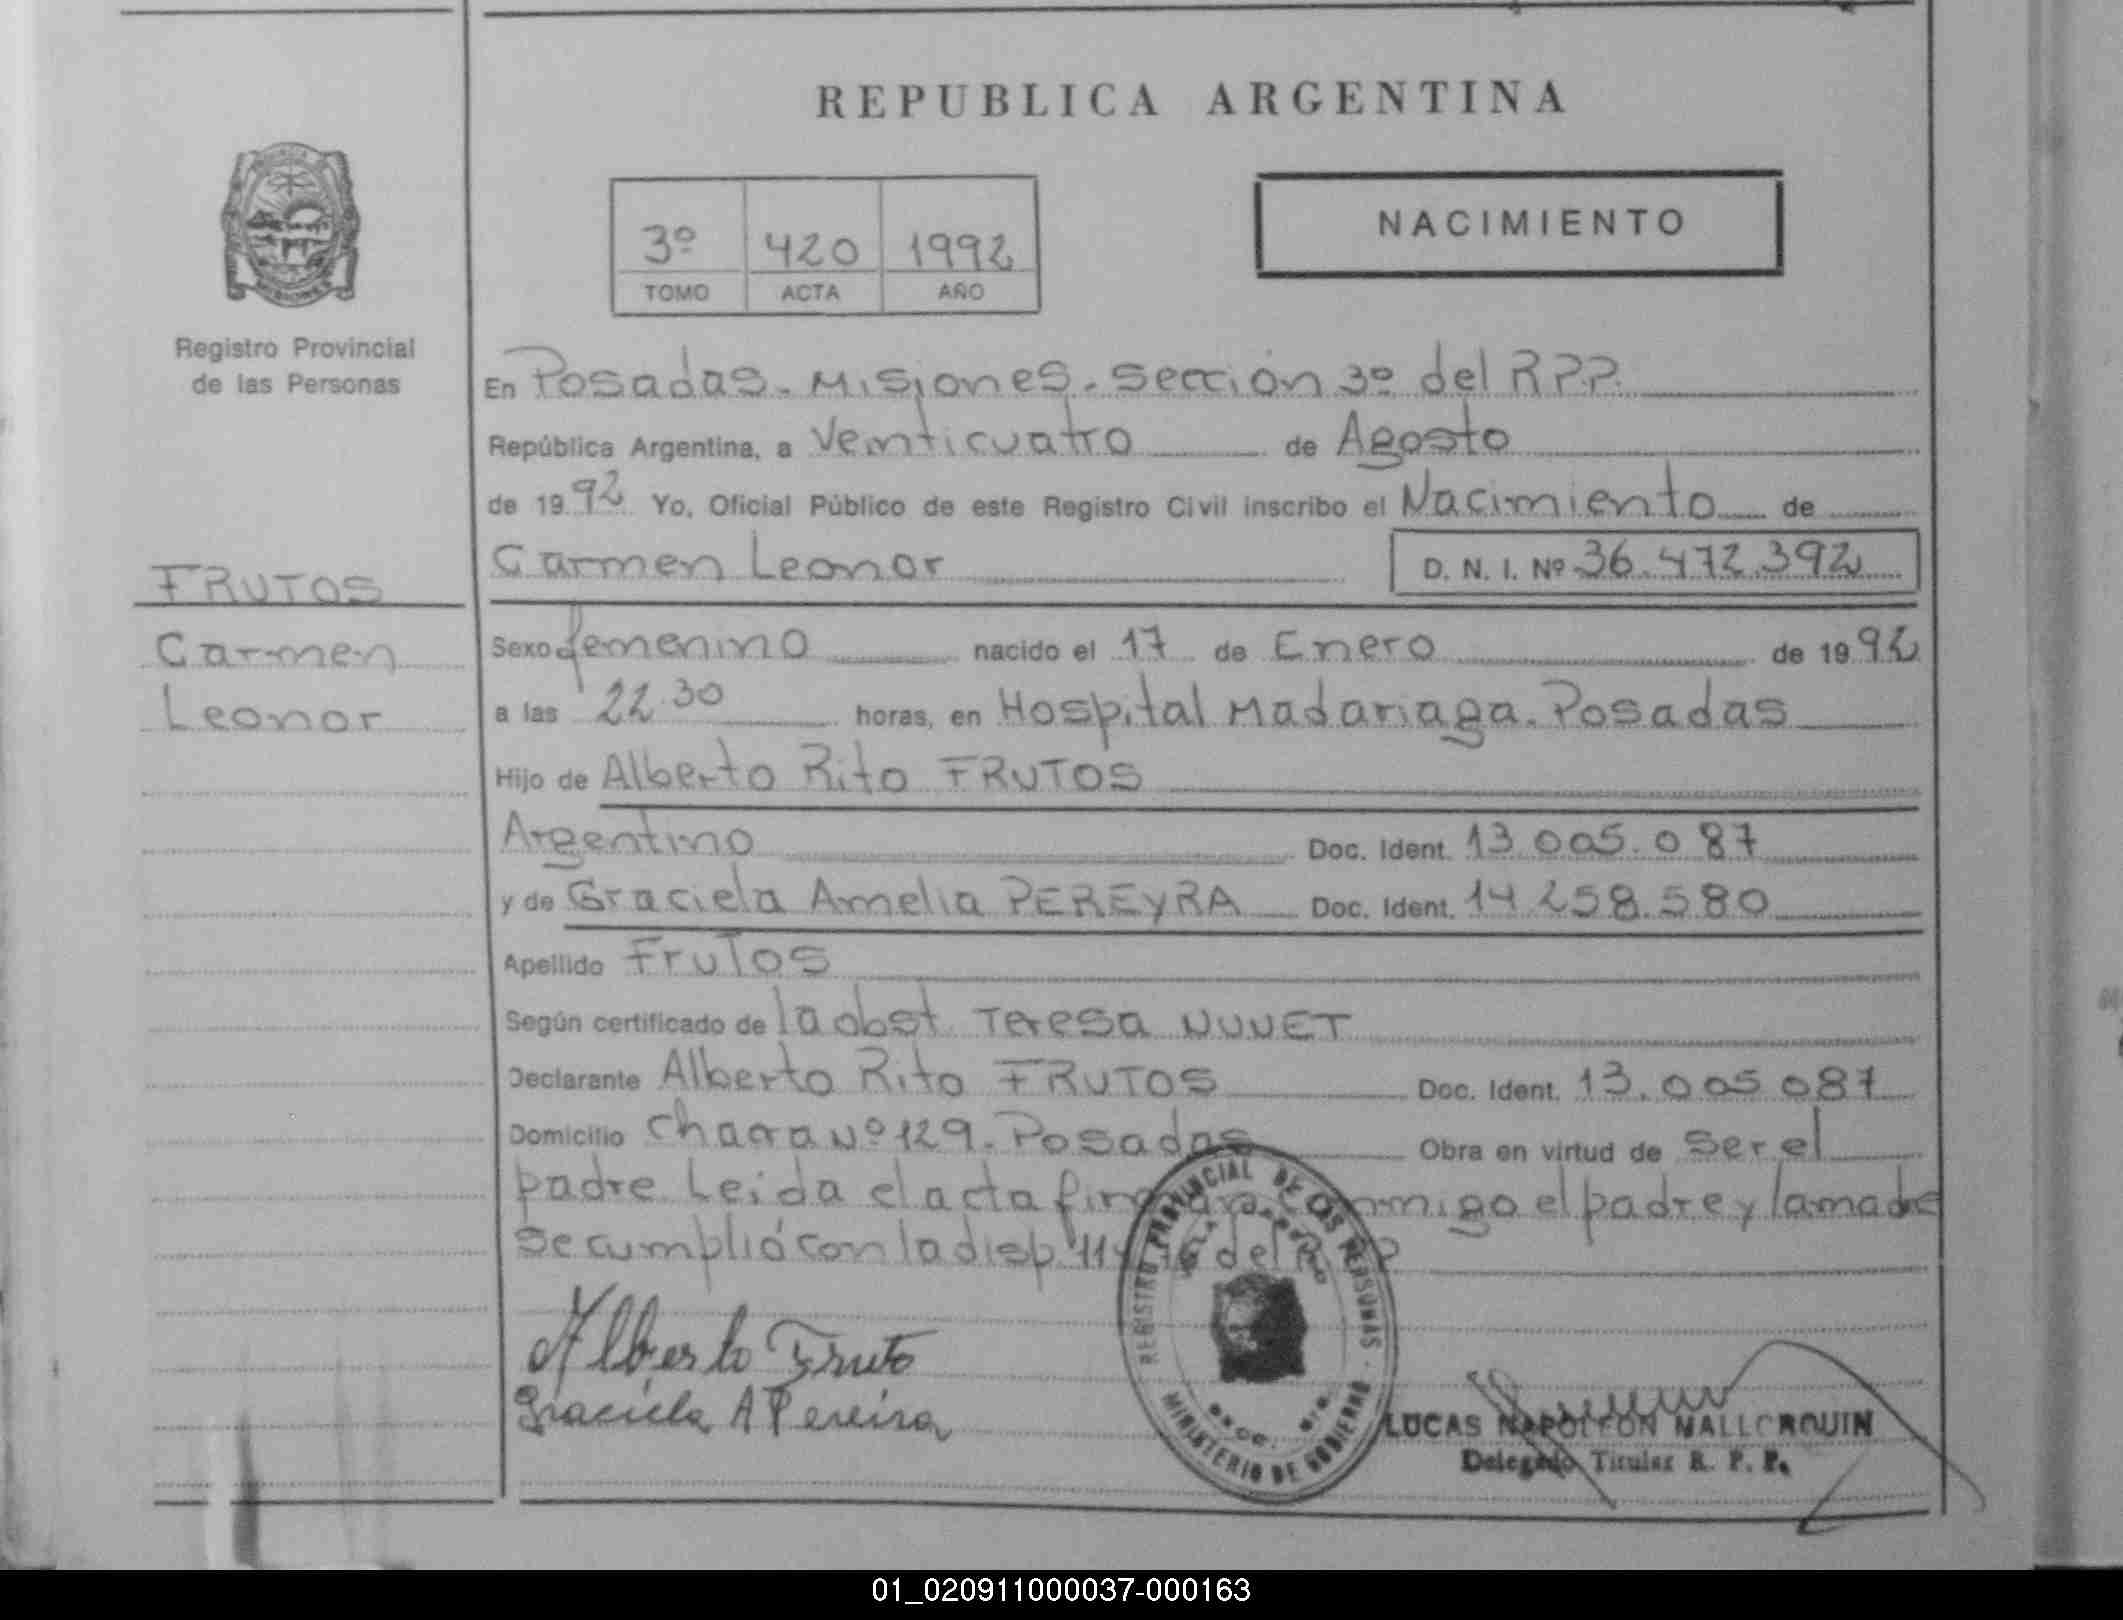 REPUBLICA ARGENTINA
NACIMIENTO
3º 420 1992
TOMO ACTA AÑO
Registro Provincial
de las Personas
FRUTOS
Carmen
Leonor
En Posadas. Misiones. Sección 3º del R.P.P.
República Argentina, a Veinticuatro de Agosto
de 1992 Yo, Oficial Público de este Registro Civil inscribo el Nacimiento de
Carmen Leonor D. N. I. Nº 36.472.392
Sexo femenino nacido el 17 de Enero de 1992
a las 22 30 horas, en Hospital Madariaga. Posadas
Hijo de Alberto Rito FRUTOS
Argentino Doc. Ident. 13.005.087
y de Graciela Amelia PEREYRA Doc. Ident. 14.258.580
Apellido FruTos
Según certificado de la obst Teresa NUNET
Declarante Alberto Rito FRUTOS Doc. Ident. 13.005.087
Domicilio Chacra Nº 129. Posadas Obra en virtud de ser el
padre Leida el acta el padre y la madre
se cumplió con la disp. del
Alberto Fruto
Graciela A Pereira
REGISTRO PROVINCIAL DE LAS PERSONAS
MINISTERIO DE GOBIERNO
LUCAS NAPOLEON MALLORQUIN
Delegado Titular R. P. P.
01_020911000037-000163